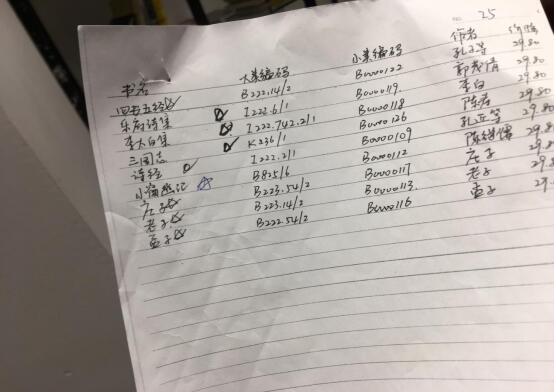 NO. 25
书名 大类编码 小类编码 作者 价格
四书五经 B222.14/2 B0000122 孔子等 29.80
乐府诗集 I222.6/1 B0000119 郭茂倩 29.80
李太白集 I222.742.2/1 B0000118 李白 29.80
三国志 K236/1 B0000126 陈寿 29.80
诗经 I222.2/1 B0000109 孔丘等 29.80
小窗幽记 B825/6 B0000112 陈继儒 29.80
庄子 B223.54/2 B0000117 庄子 29.80
老子 B223.14/2 B0000113 老子 29.80
孟子 B222.54/2 B0000116 孟子 29.